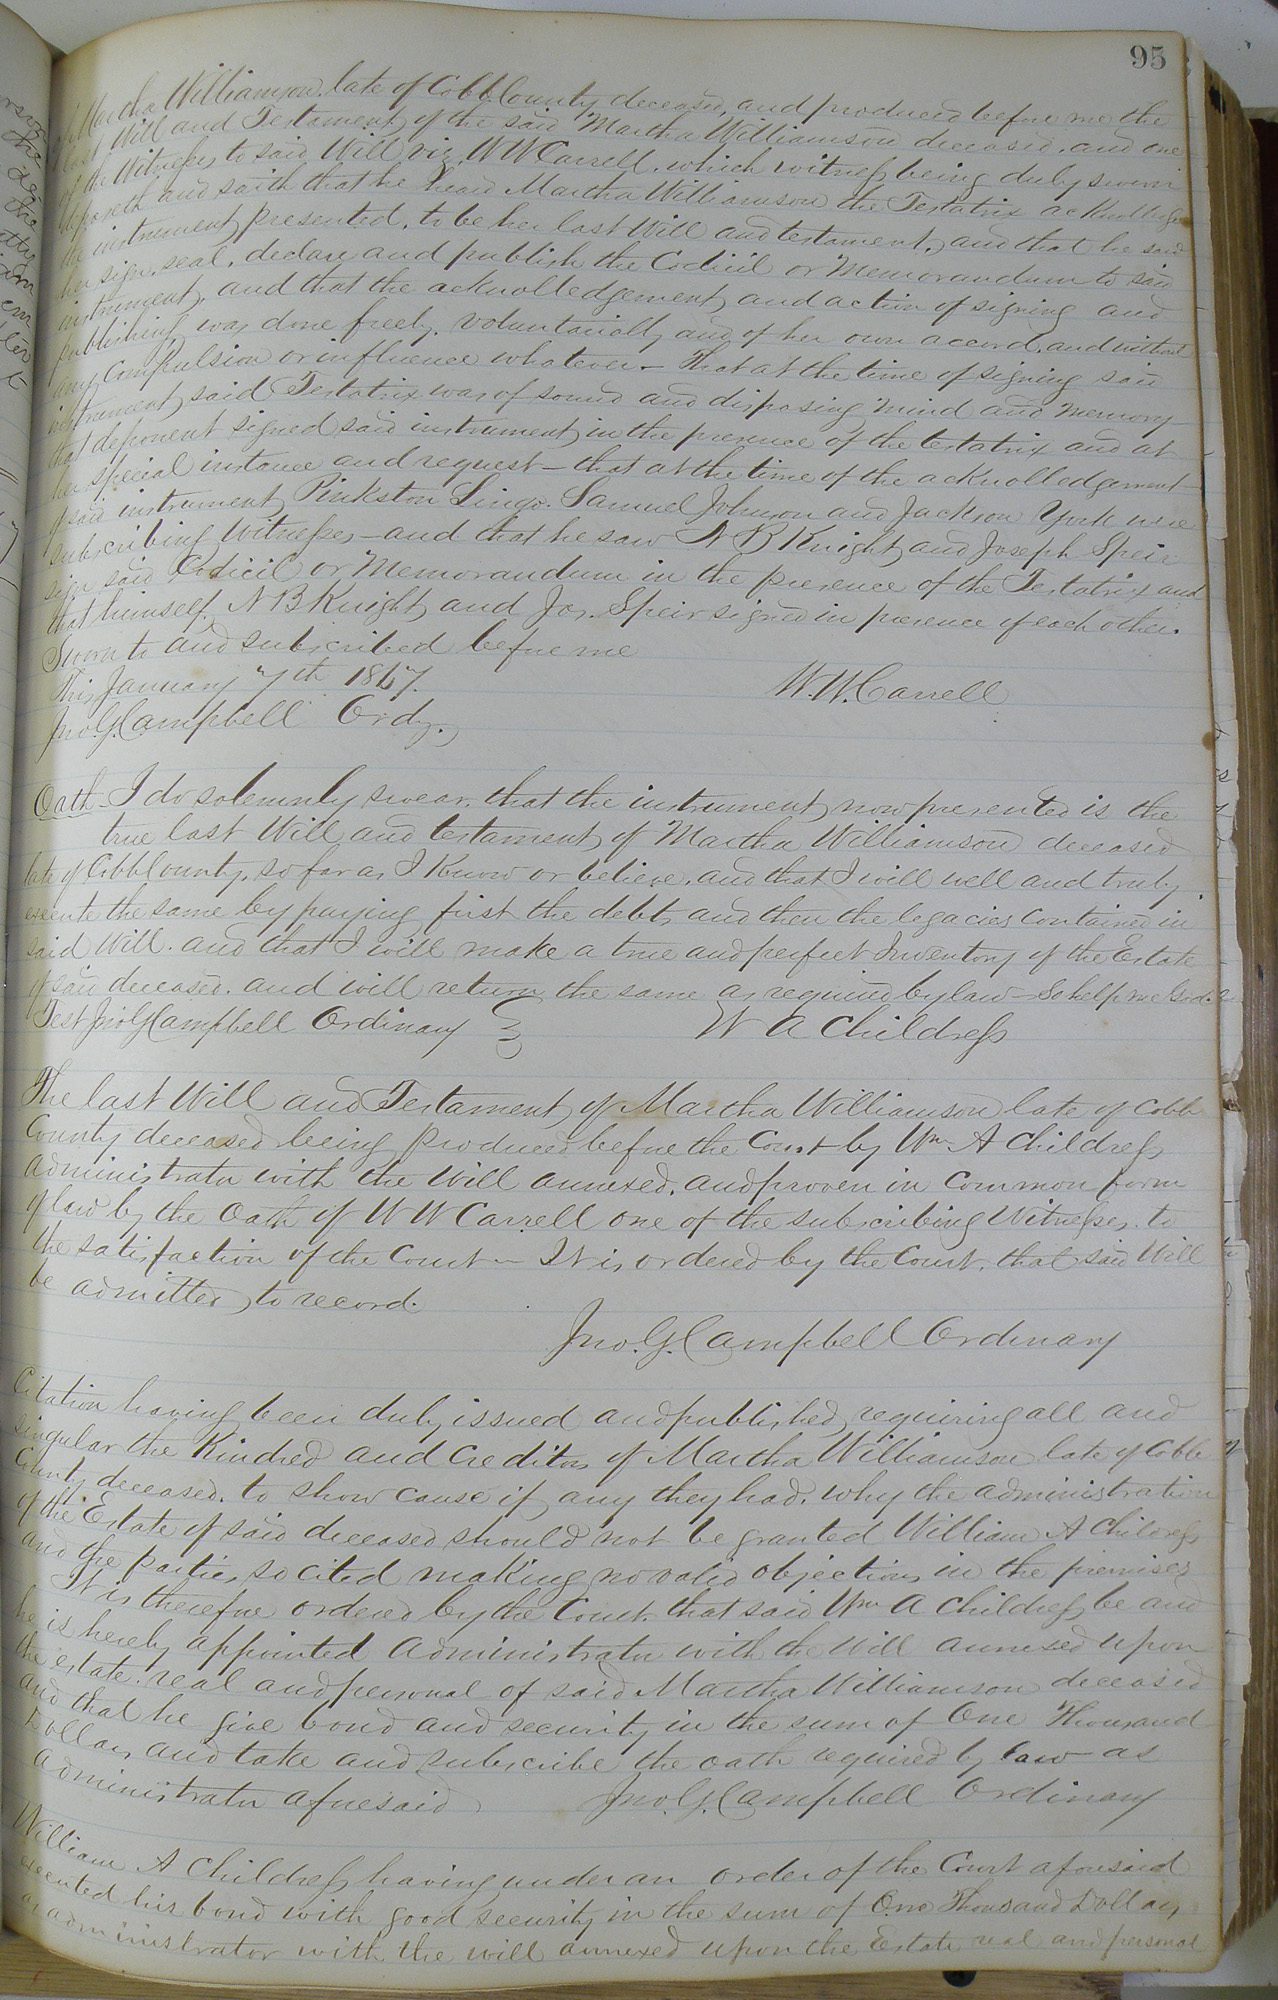 95
Martha Williamson late of Cobb County deceased, and produced before me the
last Will and Testament of the said Martha Williamson deceased, and one
of the Witnesses to said Will viz W W Carrell, which witness being duly sworn
deposeth and saith that he heard Martha Williamson the Testatrix acknolledge
the instrument presented, to be her last Will and testament, and that he saw
her sign, seal, declare and publish the Codicil or Memorandum to said
instrument, and that the acknolledgement and action of signing and
publishing was done freely, voluntarially and of her own accord, and without
any compulsion or influence whatever – That at the time of signing said
instrument said Testatrix was of sound and disposing mind and memory –
that deponent signed said instrument in the presence of the testatrix and at
her special instance and request – that at the time of the acknolledgement
of said instrument Pinkston Lingo, Samuel Johnson and Jackson York were
subscribing witnesses – and that he saw N B Knight and Joseph Speir
sign said Codicil or Memorandum in the presence of the Testatrix and
that himself, N B Knight and Jos. Speir signed in presence of each other.
Sworn to and subscribed before me
This January 7th 1867.
W. W. Carrell
Jno. G. Campbell Ordy.
Oath – I do solemnly swear, that the instrument now presented is the
true last Will and testament of Martha Williamson deceased
late of Cobb County, so far as I know or believe, and that I will well and truly
execute the same by paying first the debts and then the legacies contained in
said Will. and that I will make a true and perfect Inventory of the Estate
of said deceased. and will return the same as required by law – So help me God.
Test Jno G Campbell Ordinary
W A Childress
The last Will and Testament of Martha Williamson late of Cobb
County deceased being produced before the Court by Wm A Childress
administrator with the Will annexed, and proven in Common form
of law by the Oath of W W Carrell one of the subscribing Witnesses to
the satisfaction of the Court – It is ordered by the Court, that said Will
be admitted to record.
Jno. G. Campbell Ordinary
Citation having been duly issued and published, requiring all and
singular the Kindred and Creditors of Martha Williamson late of Cobb
County deceased, to show cause if any they had, why the administration
of the Estate of said deceased should not be granted William A Childress
and the parties so cited making no valid objections in the premises
It is therefore ordered by the Court, that said Wm A Childress be and
he is hereby appointed Administrator with the Will annexed upon
the estate real and personal of said Martha Williamson deceased
and that he give bond and security in the sum of One Thousand
Dollars and take and subscribe the oath required by law as
Administrator aforesaid
Jno. G. Campbell Ordinary
William A Childress having under an order of the Court aforesaid
executed his bond with good security in the sum of One Thousand Dollars
as administrator with the will annexed upon the Estate real and personal